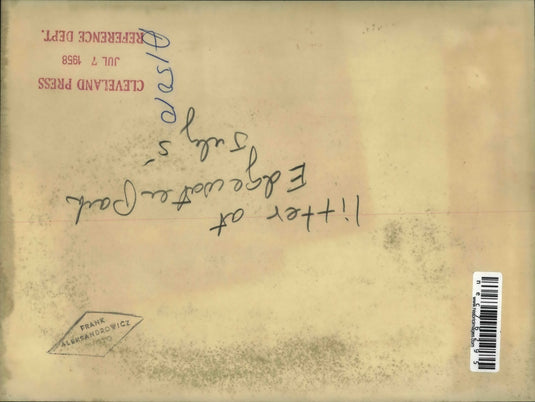 CLEVELAND PRESS
JUL 7 1958
REFERENCE DEPT.
litter at
Edgewater Park
July 5
FRANK
ALEKSANDROWICZ